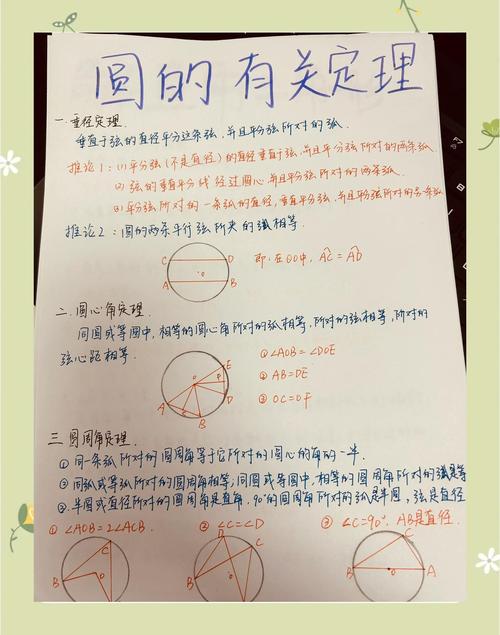 圆的有关定理
一.垂径定理.
垂直于弦的直径平分这条弦,并且平分弦所对的弧.
推论1:(1)平分弦(不是直径)的直径垂直于弦,并且平分弦所对的两条弧
(2)弦的垂直平分线经过圆心并且平分弦所对的两条弧.
(3)平分弦所对的一条弧的直径,垂直平分弦,并且平分弦所对的另一条弧
推论2:圆的两条平行弦所夹的弧相等.
C D
即:在⊙O中, AC = AD
o
A B
二.圆心角定理.
同圆或等圆中,相等的圆心角所对的弧相等,所对的弦相等,所对的
弦心距相等.
E
①∠AOB=∠DOE
O F
②AB=DE
A D
③OC=OF
B
三.圆周角定理.
①同一条弧所对的圆周角等于它所对的圆心的角的一半.
②同弧或等弧所对的圆周角相等;同圆或等圆中,相等的圆周角所对的弧是等
③半圆或直径所对的圆周角是直角,90°的圆周角所对的弧是半圆,弦是直径
①∠AOB=2∠ACB. ②∠C=∠D ③∠C=90°. AB是直径.
C D C C
B B B O A